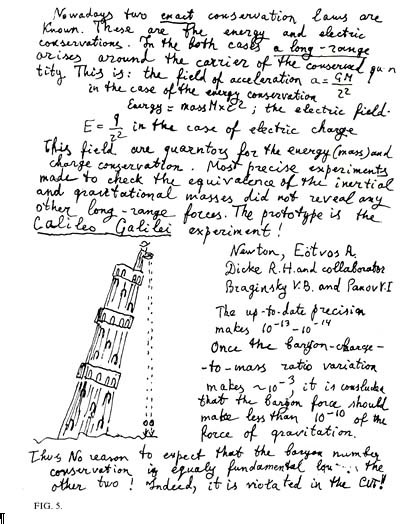 Nowadays two exact conservation laws are
known. These are the energy and electric
conservations. In the both cases a long-range
arises around the carrier of the conserved quan
tity. This is: the field of acceleration a = GM/r²
in the case of the energy conservation
Energy = mass M×c²; the electric field
E = q/r² in the case of electric charge!
This field are guarntors for the energy (mass) and
charge conservation. Most precise experiments
made to check the equivalence of the inertial
and gravitational masses did not reveal any
other long-range forces. The prototype is the
Galileo Galilei experiment!
Newton, Eötvos R.
Dicke R.H. and collaborator
Braginsky V.B. and Panov V.I
The up-to-date precision
makes 10⁻¹³–10⁻¹⁴
Once the baryon-charge-
-to-mass ratio variation
makes ~10⁻³, it is concluded
that the baryon force should
make less than 10⁻¹⁰ of the
force of gravitation.
Thus No reason to expect that the baryon number
conservation is equaly fundamental the
other two! Indeed, it is violated in the GUT!!
¶
FIG. 5.